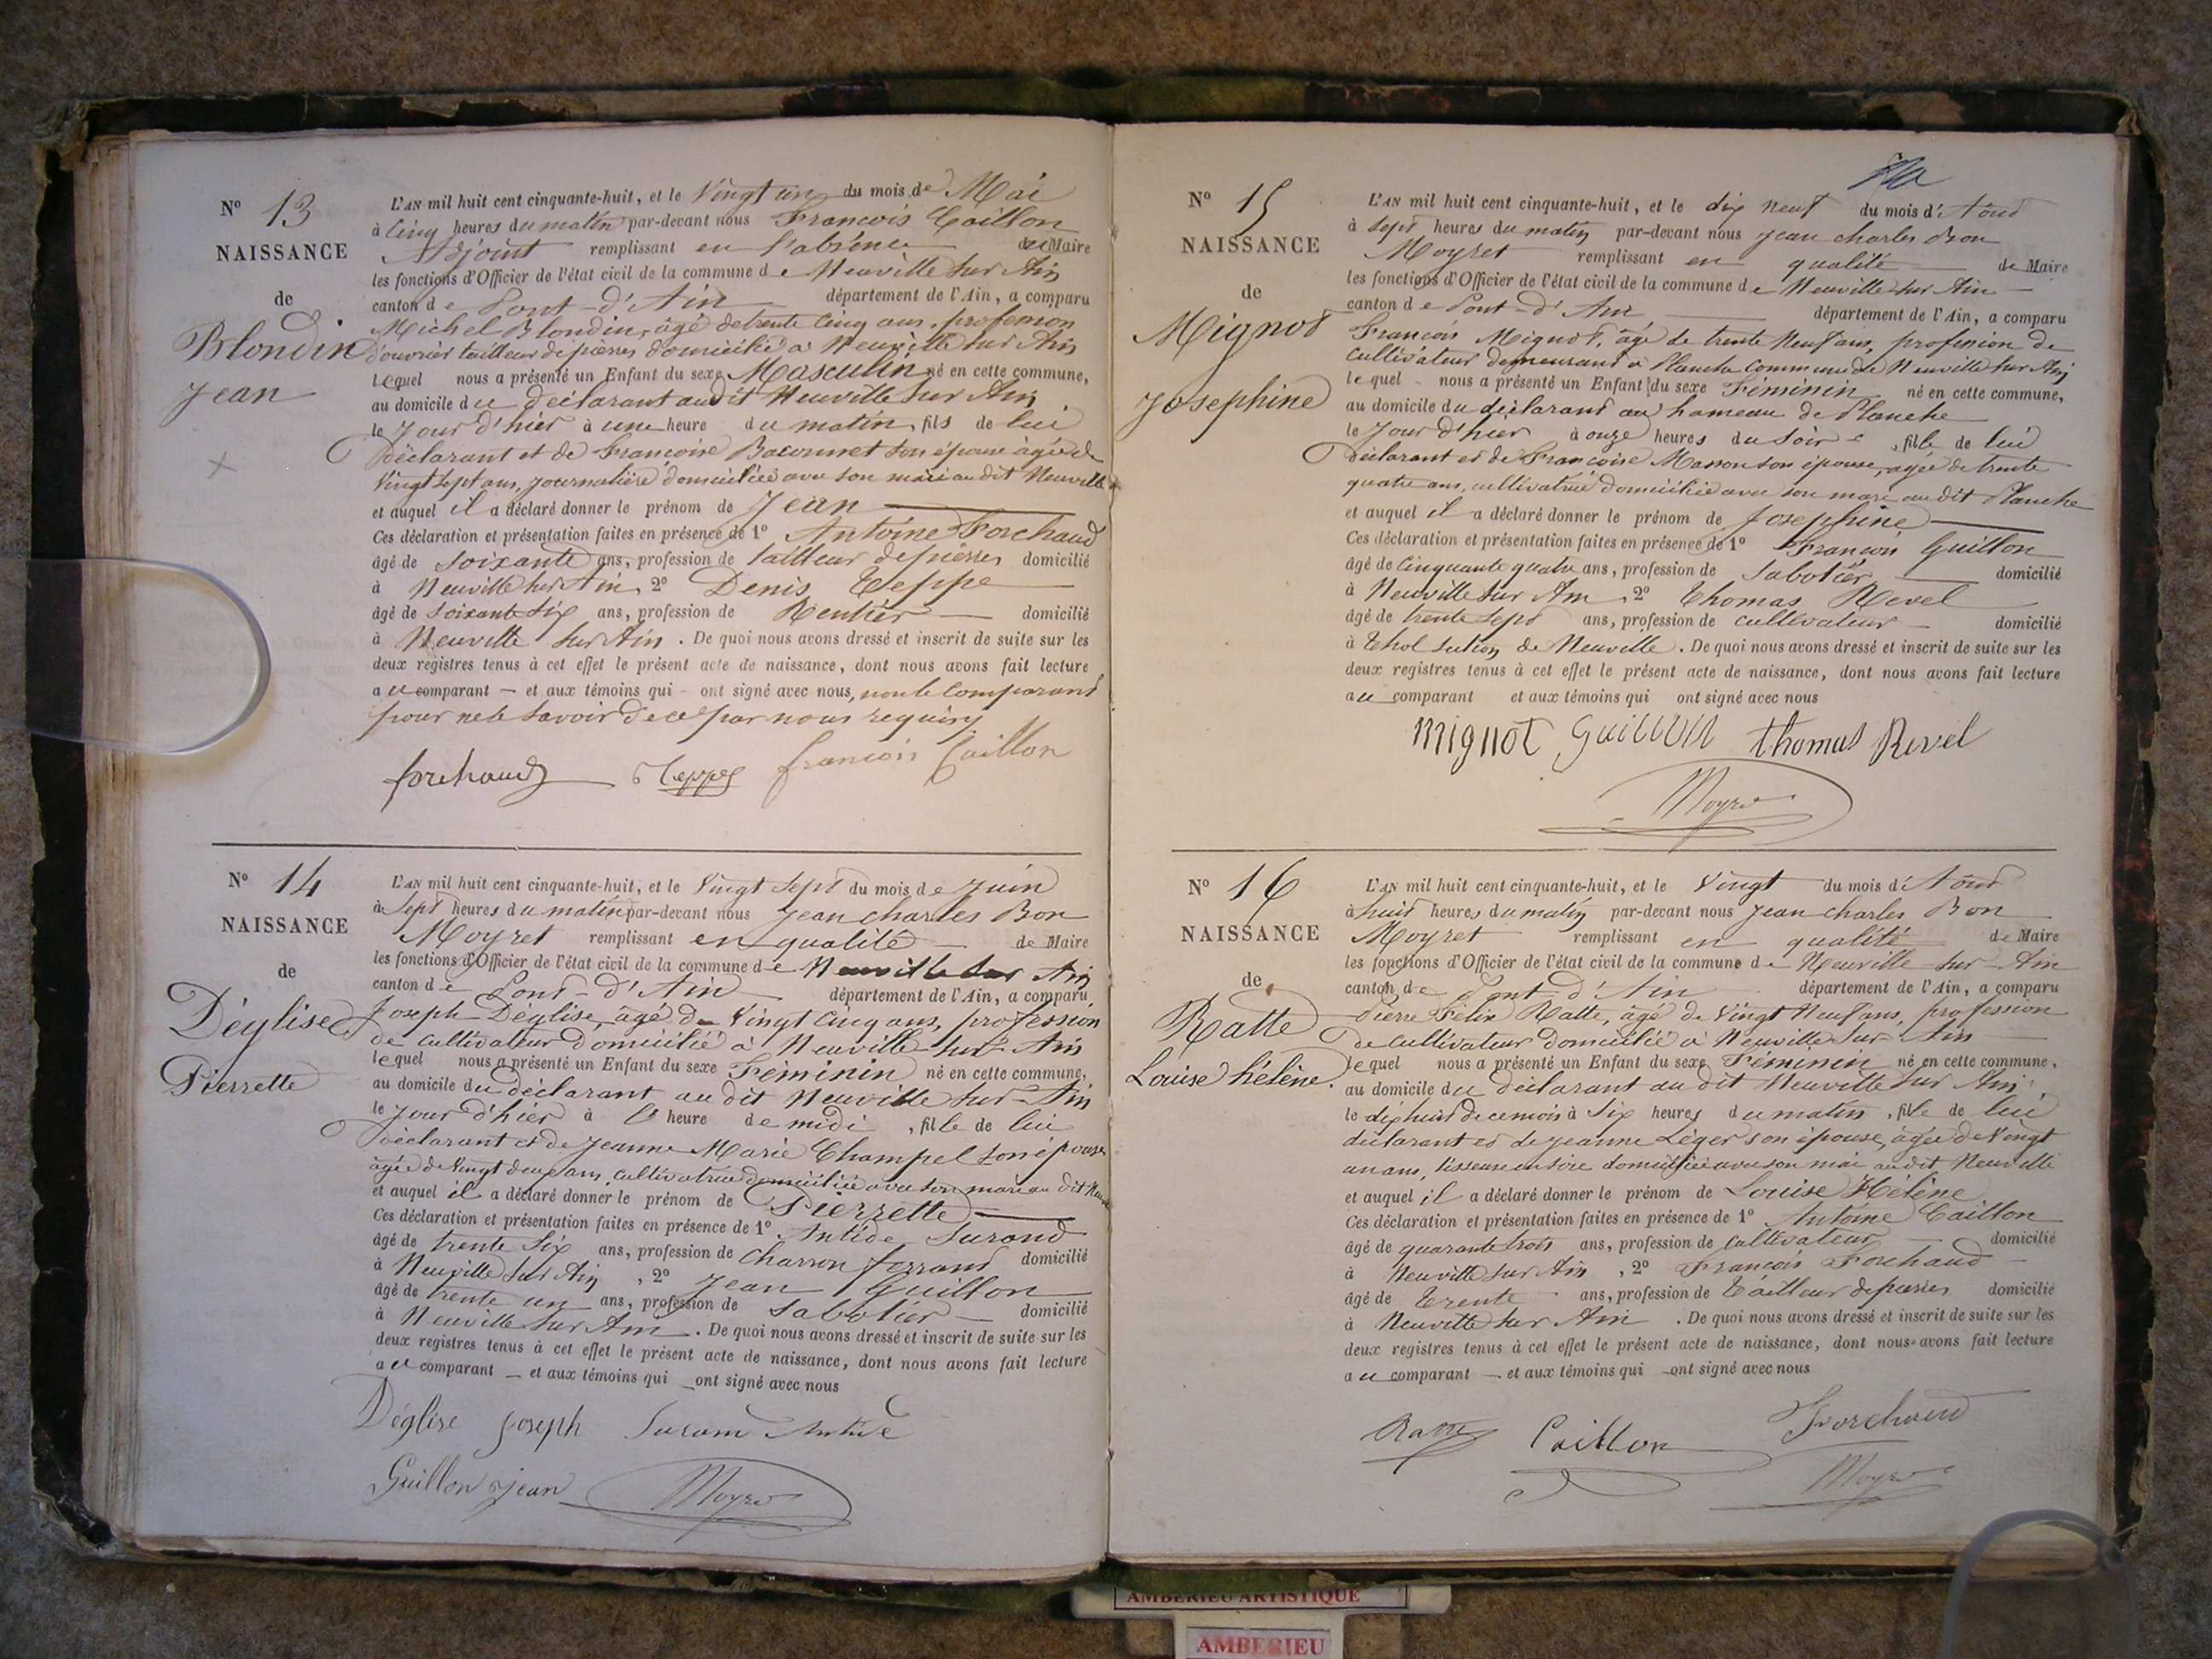 N° 13
NAISSANCE
de
Blondin
Jean
L'AN mil huit cent cinquante-huit, et le Vingt un du mois de Mai
à Cinq heures du matin par-devant nous François Caillon
Adjoint remplissant en l'absence du Maire
les fonctions d'Officier de l'état civil de la commune de Neuville sur Ain
canton de Pont-d'Ain département de l'Ain, a comparu
Michel Blondin, âgé de trente Cinq ans, profession
d'ouvrier tailleur de pierres domicilié à Neuville sur Ain
lequel nous a présenté un Enfant du sexe Masculin né en cette commune,
au domicile du déclarant audit Neuville sur Ain
le Jour d'hier à une heure du matin, fils de lui
Déclarant et de Françoise son épouse âgée de
Vingt sept ans, journalière domiciliée avec son mari audit Neuville
et auquel il a déclaré donner le prénom de Jean
Ces déclaration et présentation faites en présence de 1° Antoine Forchaud
âgé de soixante ans, profession de tailleur de pierres domicilié
à Neuville sur Ain, 2° Denis Teppe
âgé de soixante six ans, profession de Rentier domicilié
à Neuville sur Ain. De quoi nous avons dressé et inscrit de suite sur les
deux registres tenus à cet effet le présent acte de naissance, dont nous avons fait lecture
au comparant et aux témoins qui ont signé avec nous, non le Comparant
pour ne le savoir de ce par nous requis
forchaud Teppe françois Caillon
N° 14
NAISSANCE
de
Déglise
Pierrette
L'AN mil huit cent cinquante-huit, et le Vingt Sept du mois de Juin
à Sept heures du matin par-devant nous Jean Charles Bon
Moyret remplissant en qualité de Maire
les fonctions d'Officier de l'état civil de la commune de Neuville sur Ain
canton de Pont-d'Ain département de l'Ain, a comparu
Joseph Déglise, âgé de Vingt Cinq ans, profession
de cultivateur domicilié à Neuville sur Ain
lequel nous a présenté un Enfant du sexe Féminin né en cette commune,
au domicile du déclarant au dit Neuville sur Ain
le Jour d'hier à l' heure de midi, fille de lui
Déclarant et de Jeanne Marie Champel son épouse
âgée de Vingt deux ans, cultivatrice domiciliée avec son mari au dit Neuville
et auquel il a déclaré donner le prénom de Pierrette
Ces déclaration et présentation faites en présence de 1° Antide Surand
âgé de trente Six ans, profession de Charron ferrand domicilié
à Neuville sur Ain, 2° Jean Guillon
âgé de trente un ans, profession de Sabotier domicilié
à Neuville sur Ain. De quoi nous avons dressé et inscrit de suite sur les
deux registres tenus à cet effet le présent acte de naissance, dont nous avons fait lecture
au comparant et aux témoins qui ont signé avec nous
Déglise Joseph Surand Antide
Guillon Jean Moyret
N° 15
NAISSANCE
de
Mignot
Josephine
L'AN mil huit cent cinquante-huit, et le dix neuf du mois d'Aôut
à sept heures du matin par-devant nous Jean Charles Bon
Moyret remplissant en qualité de Maire
les fonctions d'Officier de l'état civil de la commune de Neuville sur Ain
canton de Pont-d'Ain département de l'Ain, a comparu
François Mignot, âgé de trente Neuf ans, profession de
cultivateur demeurant à Planche Commune de Neuville sur Ain
lequel nous a présenté un Enfant du sexe Féminin né en cette commune,
au domicile du déclarant au hameau de Planche
le Jour d'hier à onze heures du soir, fille de lui
Déclarant et de Françoise Masson son épouse, agée de trente
quatre ans, cultivatrice domiciliée avec son mari au dit Planche
et auquel il a déclaré donner le prénom de Josephine
Ces déclaration et présentation faites en présence de 1° François Guillon
âgé de Cinquante quatre ans, profession de Sabotier domicilié
à Neuville sur Ain, 2° Thomas Revel
âgé de trente sept ans, profession de cultivateur domicilié
à Thol section de Neuville. De quoi nous avons dressé et inscrit de suite sur les
deux registres tenus à cet effet le présent acte de naissance, dont nous avons fait lecture
au comparant et aux témoins qui ont signé avec nous
Mignot Guillon thomas Revel
Moyret
N° 16
NAISSANCE
de
Ratte
Louise hélène.
L'AN mil huit cent cinquante-huit, et le Vingt du mois d'Aôut
à huit heures du matin par-devant nous Jean Charles Bon
Moyret remplissant en qualité de Maire
les fonctions d'Officier de l'état civil de la commune de Neuville sur Ain
canton de Pont d'Ain département de l'Ain, a comparu
Pierre Félix Ratte, âgé de Vingt Neuf ans, profession
de Cultivateur domicilié à Neuville sur Ain
lequel nous a présenté un Enfant du sexe Féminin né en cette commune,
au domicile du déclarant au dit Neuville sur Ain
le dix huit de ce mois à Six heures du matin, fille de lui
déclarant et de Jeanne Léger son épouse, âgée de Vingt
un ans, tisseuse en soie domiciliée avec son mari au dit Neuville
et auquel il a déclaré donner le prénom de Louise Hélène
Ces déclaration et présentation faites en présence de 1° Antoine Caillon
âgé de quarante trois ans, profession de Cultivateur domicilié
à Neuville sur Ain, 2° François Forchaud
âgé de trente ans, profession de tailleur de pierres domicilié
à Neuville sur Ain. De quoi nous avons dressé et inscrit de suite sur les
deux registres tenus à cet effet le présent acte de naissance, dont nous avons fait lecture
au comparant et aux témoins qui ont signé avec nous
Ratte Caillon Forchaud
Moyret
AMBERIEU ARTISTIQUE
AMBERIEU